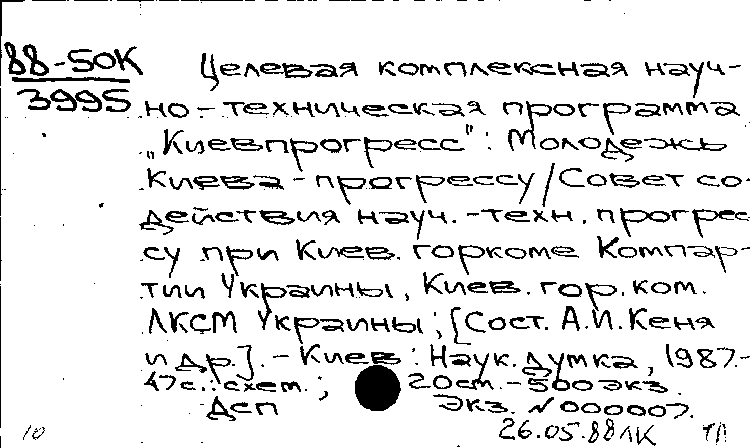 88-50К
3995
Целевая комплексная науч-
но-техническая программа
„Киевпрогресс": Молодежь
Киева - прогрессу/Совет со-
действия науч.-техн. прогрес-
су при Киев. горкоме Компар-
тии Украины, Киев. гор. ком.
ЛКСМ Украины; [Сост. А.И. Кеня
и др.]. - Киев: Наук. думка, 1987.-
47 с.: схем.; 20 см. - 500 экз.
ДСП Экз. N 000007.
10 26.05.88 ЛК